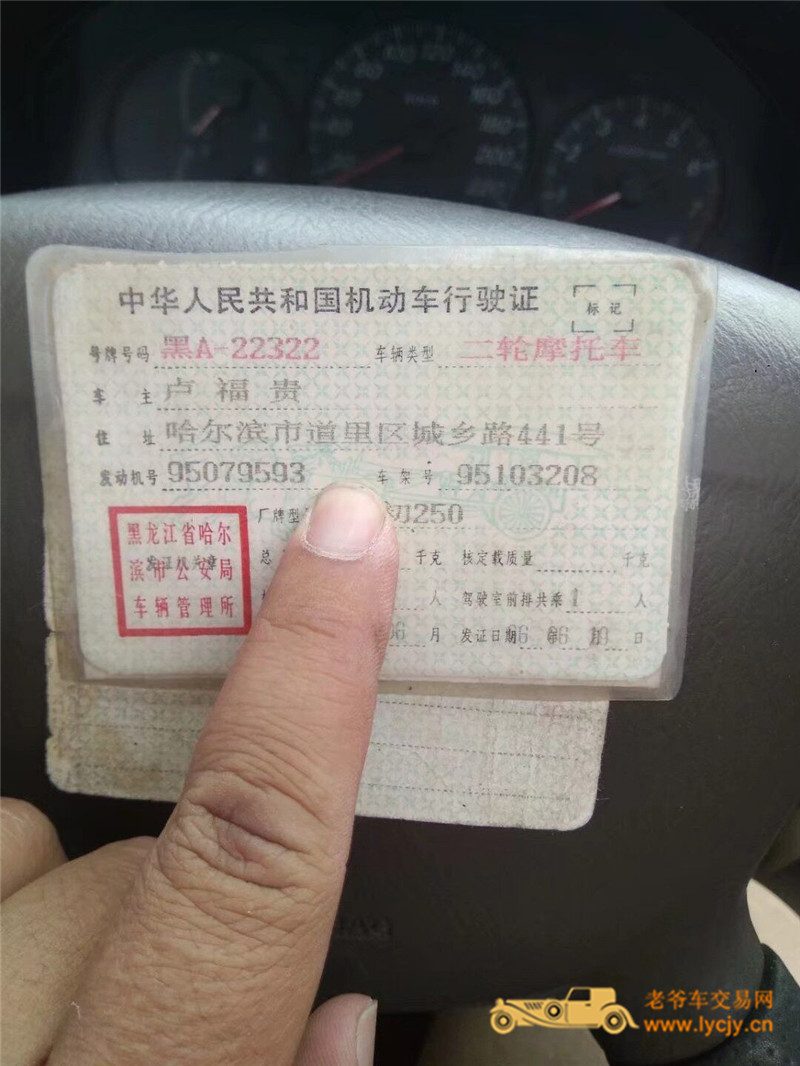 中华人民共和国机动车行驶证
标记
号牌号码 黑A-22322 车辆类型 二轮摩托车
车主 卢福贵
住址 哈尔滨市道里区城乡路441号
发动机号 95079593 车架号 95103208
厂牌型 250
总 千克 核定载质量 千克
人 驾驶室前排共乘 1 人
06 月 发证日期 日
黑龙江省哈尔
滨市公安局
车辆管理所
发证机关章
老爷车交易网
www.lycjy.cn